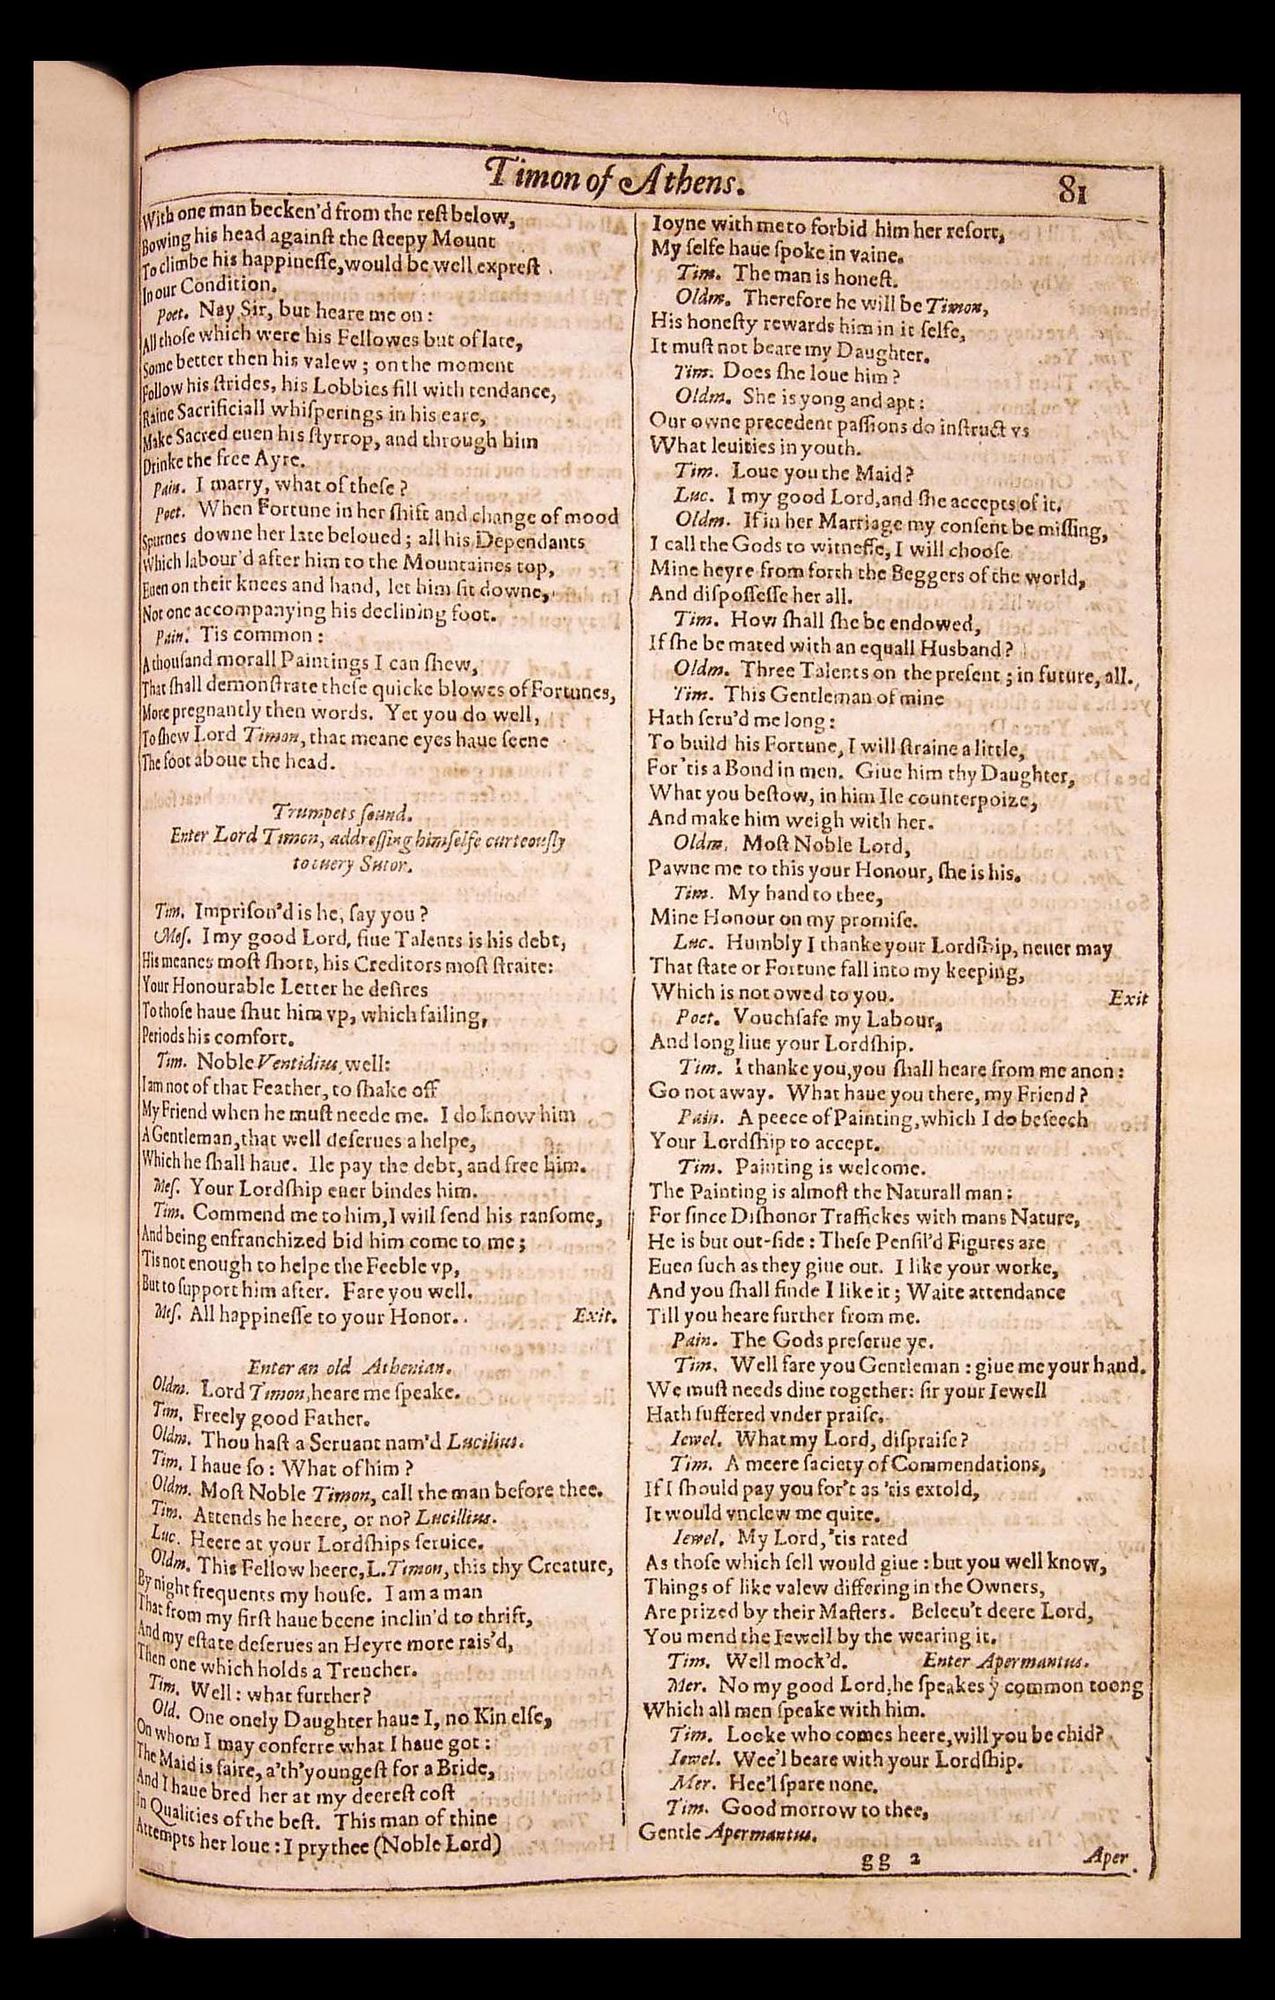 Timon of Athens. 81
With one man becken'd from the rest below,
Bowing his head against the steepy Mount
To climbe his happinesse, would be well exprest
In our Condition.
Poet. Nay Sir, but heare me on:
All those which were his Fellowes but of late,
Some better then his valew; on the moment
Follow his strides, his Lobbies fill with tendance,
Raine Sacrificiall whisperings in his eare,
Make Sacred euen his styrrop, and through him
Drinke the free Ayre.
Pain. I marry, what of these?
Poet. When Fortune in her shift and change of mood
Spurnes downe her late beloued; all his Dependants
Which labour'd after him to the Mountaines top,
Euen on their knees and hand, let him sit downe,
Not one accompanying his declining foot.
Pain. Tis common:
A thousand morall Paintings I can shew,
That shall demonstrate these quicke blowes of Fortunes,
More pregnantly then words. Yet you do well,
To shew Lord Timon, that meane eyes haue seene
The foot aboue the head.
Trumpets sound.
Enter Lord Timon, addressing himselfe curteously
to euery Sutor.
Tim. Imprison'd is he, say you?
Mes. I my good Lord, fiue Talents is his debt,
His meanes most short, his Creditors most straite:
Your Honourable Letter he desires
To those haue shut him vp, which failing,
Periods his comfort.
Tim. Noble Ventidius well:
I am not of that Feather, to shake off
My Friend when he must neede me. I do know him
A Gentleman, that well deserues a helpe,
Which he shall haue. Ile pay the debt, and free him.
Mes. Your Lordship euer bindes him.
Tim. Commend me to him, I will send his ransome,
And being enfranchized bid him come to me;
Tis not enough to helpe the Feeble vp,
But to support him after. Fare you well.
Mes. All happinesse to your Honor. Exit.
Enter an old Athenian.
Oldm. Lord Timon, heare me speake.
Tim. Freely good Father.
Oldm. Thou hast a Seruant nam'd Lucilius.
Tim. I haue so: What of him?
Oldm. Most Noble Timon, call the man before thee.
Tim. Attends he heere, or no? Lucillius.
Luc. Heere at your Lordships seruice.
Oldm. This Fellow heere, L. Timon, this thy Creature,
By night frequents my house. I am a man
That from my first haue beene inclin'd to thrift,
And my estate deserues an Heyre more rais'd,
Then one which holds a Trencher.
Tim. Well: what further?
Old. One onely Daughter haue I, no Kin else,
On whom I may conferre what I haue got:
The Maid is faire, a'th'youngest for a Bride,
And I haue bred her at my deerest cost
In Qualities of the best. This man of thine
Attempts her loue: I prythee (Noble Lord)
Ioyne with me to forbid him her resort,
My selfe haue spoke in vaine.
Tim. The man is honest.
Oldm. Therefore he will be Timon,
His honesty rewards him in it selfe,
It must not beare my Daughter.
Tim. Does she loue him?
Oldm. She is yong and apt:
Our owne precedent passions do instruct vs
What leuities in youth.
Tim. Loue you the Maid?
Luc. I my good Lord, and she accepts of it.
Oldm. If in her Marriage my consent be missing,
I call the Gods to witnesse, I will choose
Mine heyre from forth the Beggers of the world,
And dispossesse her all.
Tim. How shall she be endowed,
If she be mated with an equall Husband?
Oldm. Three Talents on the present; in future, all.
Tim. This Gentleman of mine
Hath seru'd me long:
To build his Fortune, I will straine a little,
For 'tis a Bond in men. Giue him thy Daughter,
What you bestow, in him Ile counterpoize,
And make him weigh with her.
Oldm. Most Noble Lord,
Pawne me to this your Honour, she is his.
Tim. My hand to thee,
Mine Honour on my promise.
Luc. Humbly I thanke your Lordship, neuer may
That state or Fortune fall into my keeping,
Which is not owed to you. Exit
Poet. Vouchsafe my Labour,
And long liue your Lordship.
Tim. I thanke you, you shall heare from me anon:
Go not away. What haue you there, my Friend?
Pain. A peece of Painting, which I do beseech
Your Lordship to accept.
Tim. Painting is welcome.
The Painting is almost the Naturall man:
For since Dishonor Traffickes with mans Nature,
He is but out-side: These Pensil'd Figures are
Euen such as they giue out. I like your worke,
And you shall finde I like it; Waite attendance
Till you heare further from me.
Pain. The Gods preserue ye.
Tim. Well fare you Gentleman: giue me your hand.
We must needs dine together: sir your Iewell
Hath suffered vnder praise.
Iewel. What my Lord, dispraise?
Tim. A meere saciety of Commendations,
If I should pay you for't as 'tis extold,
It would vnclew me quite.
Iewel. My Lord, 'tis rated
As those which sell would giue: but you well know,
Things of like valew differing in the Owners,
Are prized by their Masters. Beleeu't deere Lord,
You mend the Iewell by the wearing it.
Tim. Well mock'd. Enter Apermantus.
Mer. No my good Lord, he speakes ÿ common toong
Which all men speake with him.
Tim. Looke who comes heere, will you be chid?
Iewel. Wee'l beare with your Lordship.
Mer. Hee'l spare none.
Tim. Good morrow to thee,
Gentle Apermantus.
gg 2 Aper.